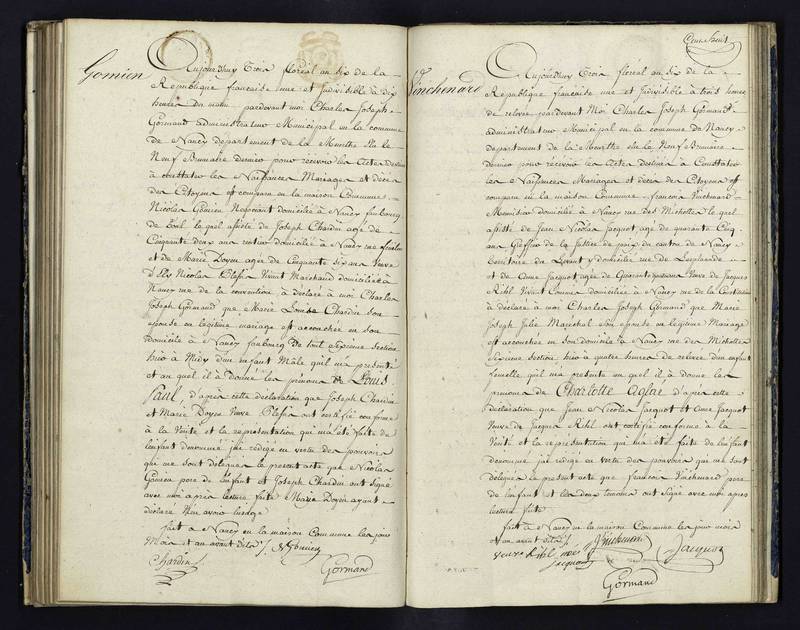 Gomien
Aujourd'huy Trois floréal an six de la
République française une et Indivisible à dix
heures du matin pardevant moi Charles Joseph
Gormand administrateur Municipal en la commune
de Nancy département de la Meurthe élu le
Neuf Brumaire dernier pour recevoir les Actes destinés
à constater les Naissances Mariages et décès
des Citoyens est comparu en la maison Commune
Nicolas Gomien Negociant domicilié à Nancy faubourg
de Toul lequel assisté de Joseph Chardin agé de
Cinquante deux ans domicilié à Nancy rue
et de Marie Doyen agée de Cinquante six ans Veuve
Nicolas Vivant Marchand domiciliée à
Nancy rue de la convention à déclaré à moi Charles
Joseph Gormand que Marie Louise Chardin son
épouse en légitime mariage est accouchée en son
domicile à Nancy faubourg de toul sixieme section
hier à Midy d'un enfant Mâle qu'il m'a présenté
et au quel il à donné les prénoms de Louis
Paul, d'après cette déclaration que Joseph Chardin
et Marie Doyen Veuve ont certifié conforme
à la Vérité et la représentation qui m'a été faite de
l'enfant dénommé j'ai rédigé en vertu des pouvoirs
qui me sont délégués le présent acte que Nicolas
Gomien pere de l'enfant et Joseph Chardin ont signé
avec moi après lecture faite Marie Doyen ayant
déclaré n'en avoir l'usage
fait à Nancy en la maison Commune les jour
Mois et an avant dits ./. N Gomien
Chardin
Gormand
Cent huit
Vinchenard
Aujourd'huy Trois floréal an six de la
République française une et Indivisible à trois heures
de relevée pardevant Moi Charles Joseph Gormand
administrateur Municipal en la commune de Nancy
département de la Meurthe élu le Neuf Brumaire
dernier pour recevoir les Actes destinés à Constater
les Naissances Mariages et décès des Citoyens est
comparu en la maison Commune françois Vinchenard
Menuisier domicilié à Nancy rue des Michottes le quel
assisté de Jean Nicolas Jacquot agé de quarante Cinq
ans Greffier de la Justice de paix du canton de Nancy
territoire du Levant y domicilié rue de l'esplanade
et de Anne Jacquot agée de Quarante ans Veuve de Jacques
Kihl Vivant domiciliée à Nancy rue de la Constitution
à déclaré à moi Charles Joseph Gormand que Marie
Joseph Julie Maréchal son épouse en légitime Mariage
est accouchée en son domicile à Nancy rue des Michottes
sixieme section hier à quatre heures de relevée d'un enfant
femelle qu'il m'a présenté au quel il à donné les
prénoms de Charlotte Aglaé d'après cette
déclaration que Jean Nicolas Jacquot et Anne Jacquot
Veuve de Jacques Kihl ont certifié conforme à la
Vérité et la représentation qui m'a été faite de l'enfant
dénommé j'ai rédigé en vertu des pouvoirs qui me sont
délégués le présent acte que françois Vinchenard pere
de l'enfant et les deux temoins ont signé avec moi après
lecture faite
fait à Nancy en la maison Commune les jour mois
et an avant dits ./. Vinchenard
Veuve Kihl née Jacquot
Jacquot
Gormand